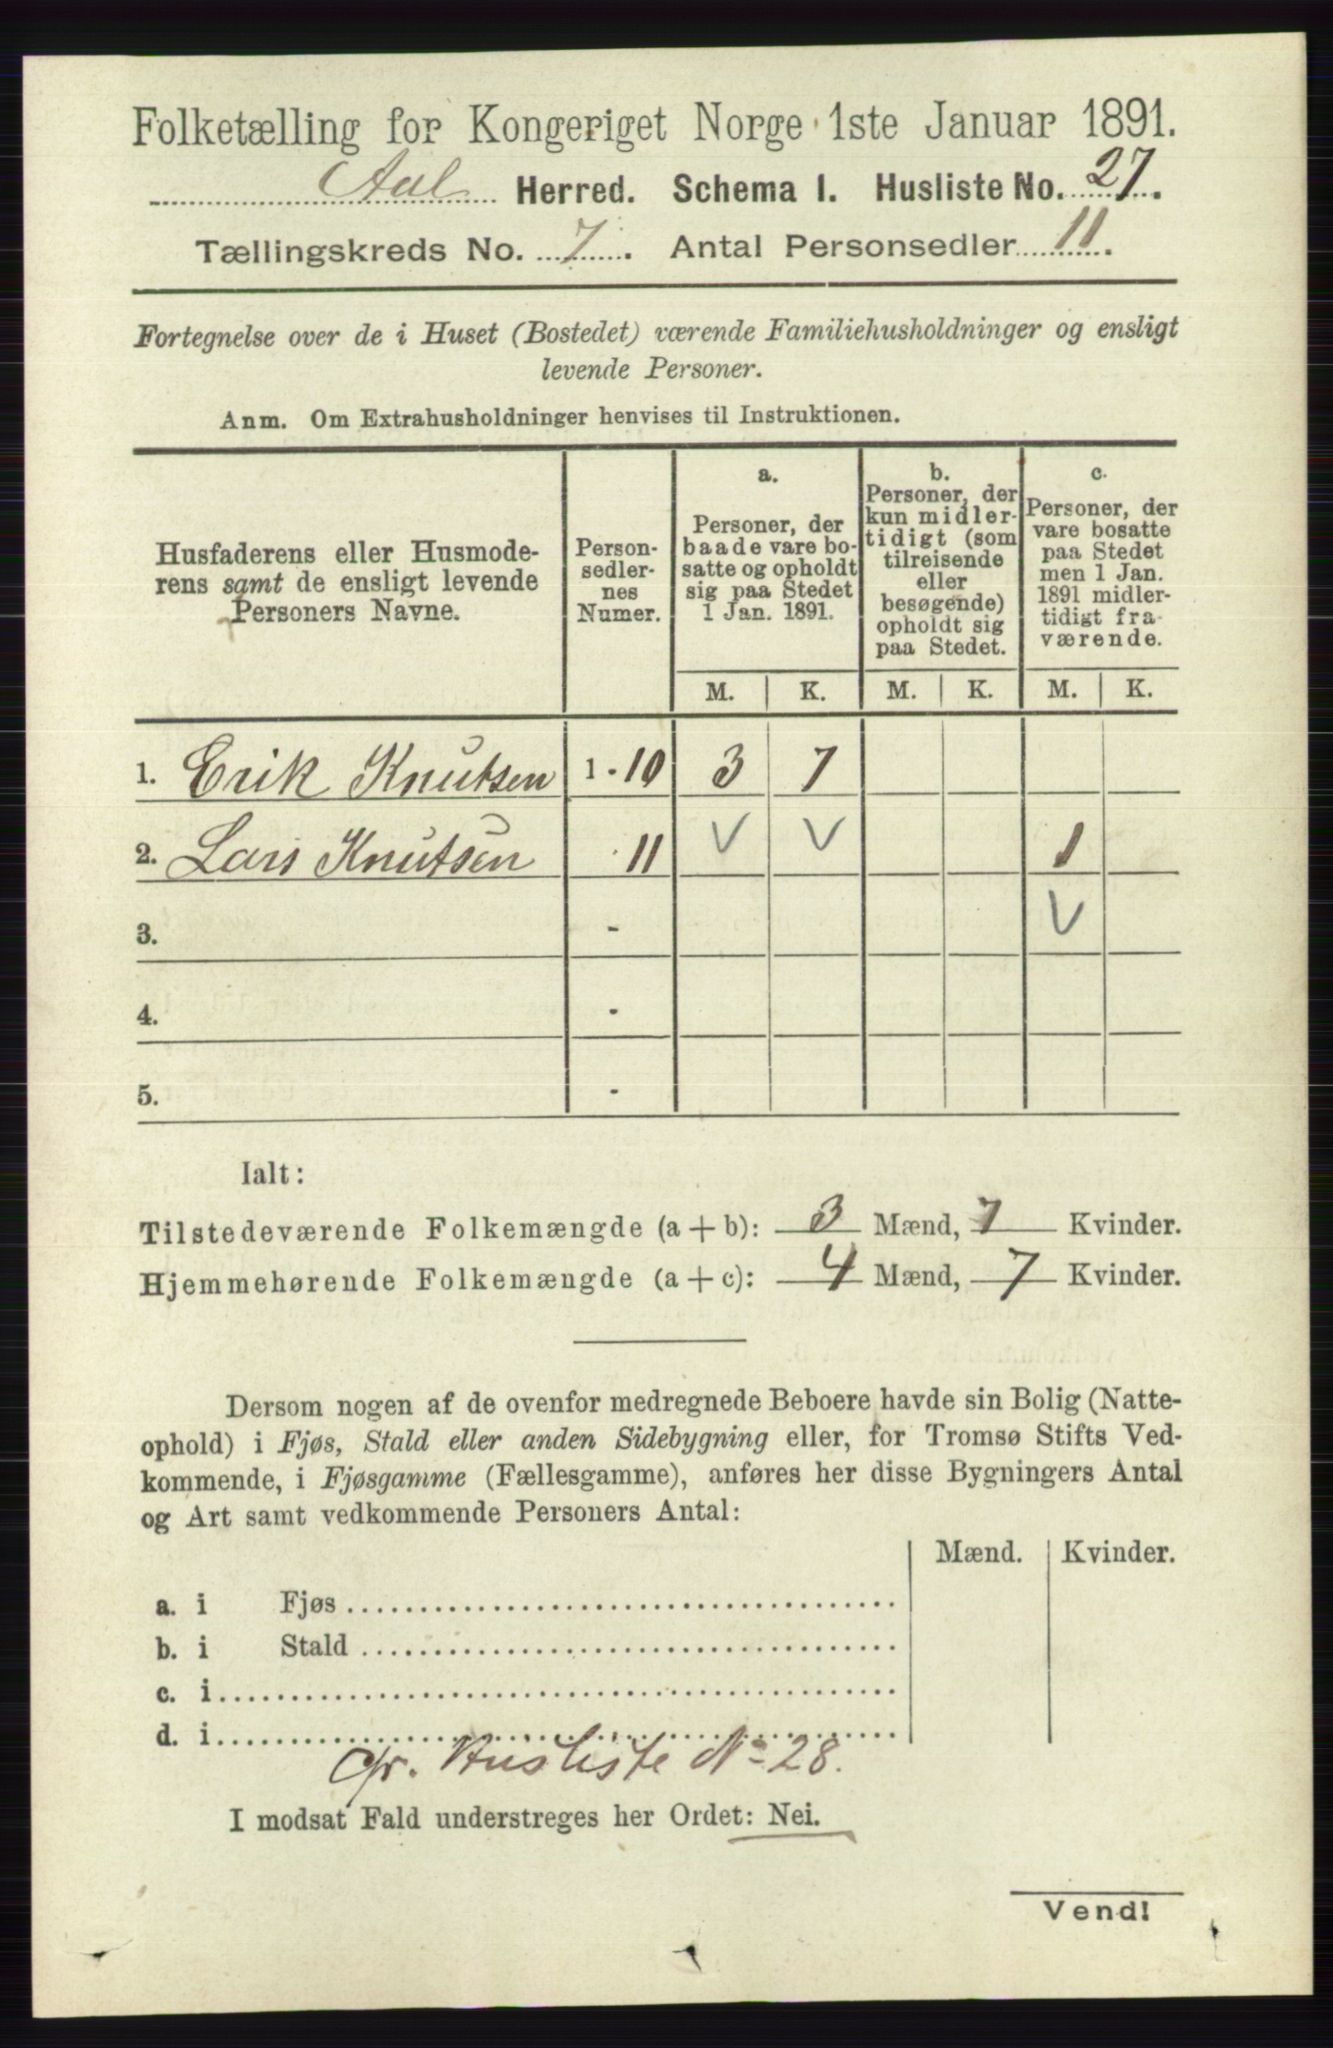 Folketælling for Kongeriget Norge 1ste Januar 1891.
Aal Herred. Schema I. Husliste No. 27.
Tællingskreds No. 7. Antal Personsedler 11.
Fortegnelse over de i Huset (Bostedet) værende Familiehusholdninger og ensligt
levende Personer.
Anm. Om Extrahusholdninger henvises til Instruktionen.
Husfaderens eller Husmode-
rens samt de ensligt levende
Personers Navne.
Person-
sedler-
nes
Numer.
a.
Personer, der
baade vare bo-
satte og opholdt
sig paa Stedet
1 Jan. 1891.
b.
Personer, der
kun midler-
tidigt (som
tilreisende
eller
besøgende)
opholdt sig
paa Stedet.
c.
Personer, der
vare bosatte
paa Stedet
men 1 Jan.
1891 midler-
tidigt fra-
værende.
M. K. M. K. M. K.
1. Erik Knutsen 1-10 3 7
2. Lars Knutsen 11 V V 1
3. - V
4. -
5. -
Ialt:
Tilstedeværende Folkemængde (a + b): 3 Mænd, 7 Kvinder.
Hjemmehørende Folkemængde (a + c): 4 Mænd, 7 Kvinder.
Dersom nogen af de ovenfor medregnede Beboere havde sin Bolig (Natte-
ophold) i Fjøs, Stald eller anden Sidebygning eller, for Tromsø Stifts Ved-
kommende, i Fjøsgamme (Fællesgamme), anføres her disse Bygningers Antal
og Art samt vedkommende Personers Antal:
Mænd. Kvinder.
a. i Fjøs
b. i Stald
c. i
d. i
cfr. Husliste No 28.
I modsat Fald understreges her Ordet: Nei.
Vend!